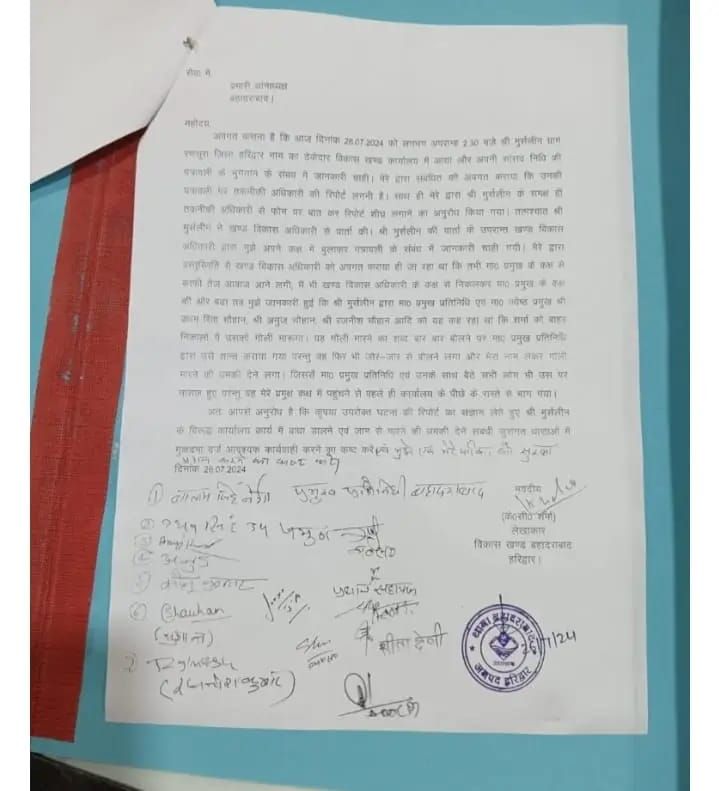 सेवा में,
प्रभारी थानाध्यक्ष
बहादराबाद।
महोदय,
अवगत कराना है कि आज दिनांक 26.07.2024 को लगभग अपरान्ह 2.30 बजे श्री मुर्सलीन ग्राम
जिला हरिद्वार नाम का ठेकेदार विकास खण्ड कार्यालय में आया और अपनी सांसद निधि की
पत्रावली के भुगतान के संबंध में जानकारी चाही। मेरे द्वारा संबंधित को अवगत कराया कि उनकी
पत्रावली पर तकनीकी अधिकारी की रिपोर्ट लगनी है। साथ ही मेरे द्वारा श्री मुर्सलीन के समक्ष ही
तकनीकी अधिकारी से फोन पर बात कर रिपोर्ट शीघ्र लगाने का अनुरोध किया गया। तत्पश्चात श्री
मुर्सलीन ने खण्ड विकास अधिकारी से वार्ता की। श्री मुर्सलीन की वार्ता के उपरान्त खण्ड विकास
अधिकारी द्वारा मुझे अपने कक्ष में बुलाकर पत्रावली के संबंध में जानकारी चाही गयी। मेरे द्वारा
वस्तुस्थिति से खण्ड विकास अधिकारी को अवगत कराया ही जा रहा था कि तभी मा0 प्रमुख के कक्ष से
काफी तेज आवाज आने लगी, मैं भी खण्ड विकास अधिकारी के कक्ष से निकलकर मा0 प्रमुख के कक्ष
की ओर बढा तब मुझे जानकारी हुई कि श्री मुर्सलीन द्वारा मा0 प्रमुख प्रतिनिधि एवं मा0 ज्येष्ठ प्रमुख श्री
सिंह चौहान, श्री अनुज चौहान, श्री रजनीश चौहान आदि को यह कह रहा था कि शर्मा को बाहर
निकालो मैं उसको गोली मारूगा। यह गोली मारने का शब्द बार बार बोलने पर मा0 प्रमुख प्रतिनिधि
द्वारा उसे शान्त कराया गया परन्तु वह फिर भी जोर-जोर से बोलने लगा और मेरा नाम लेकर गोली
मारने की धमकी देने लगा। जिससे मा0 प्रमुख प्रतिनिधि एवं उनके साथ बैठे सभी लोग भी उस पर
नाराज हुए परन्तु वह मेरे प्रमुख कक्ष में पहुंचने से पहले ही कार्यालय के पीछे के रास्ते से भाग गया।
अतः आपसे अनुरोध है कि कृपया उपरोक्त घटना की रिपोर्ट का संज्ञान लेते हुए श्री मुर्सलीन
के विरूद्ध कार्यालय कार्य में बाधा डालने एवं जान से मारने की धमकी देने संबंधी सुसंगत धाराओं में
मुकदमा दर्ज आवश्यक कार्यवाही करने का कष्ट करें एवं मुझे एवं मेरे परिवार को सुरक्षा
प्रदान करने का कष्ट करें।
दिनांक 26.07.2024
भवदीय
① प्रमुख प्रतिनिधि बहादराबाद
(के0सी0 शर्मा)
लेखाकार
विकास खण्ड बहादराबाद
हरिद्वार।
② उप प्रमुख
③
④
⑤
⑥ Chauhan
शीला देवी
⑦ Rajneesh
(रजनीश कुमार)
थाना बहादराबाद
जनपद हरिद्वार